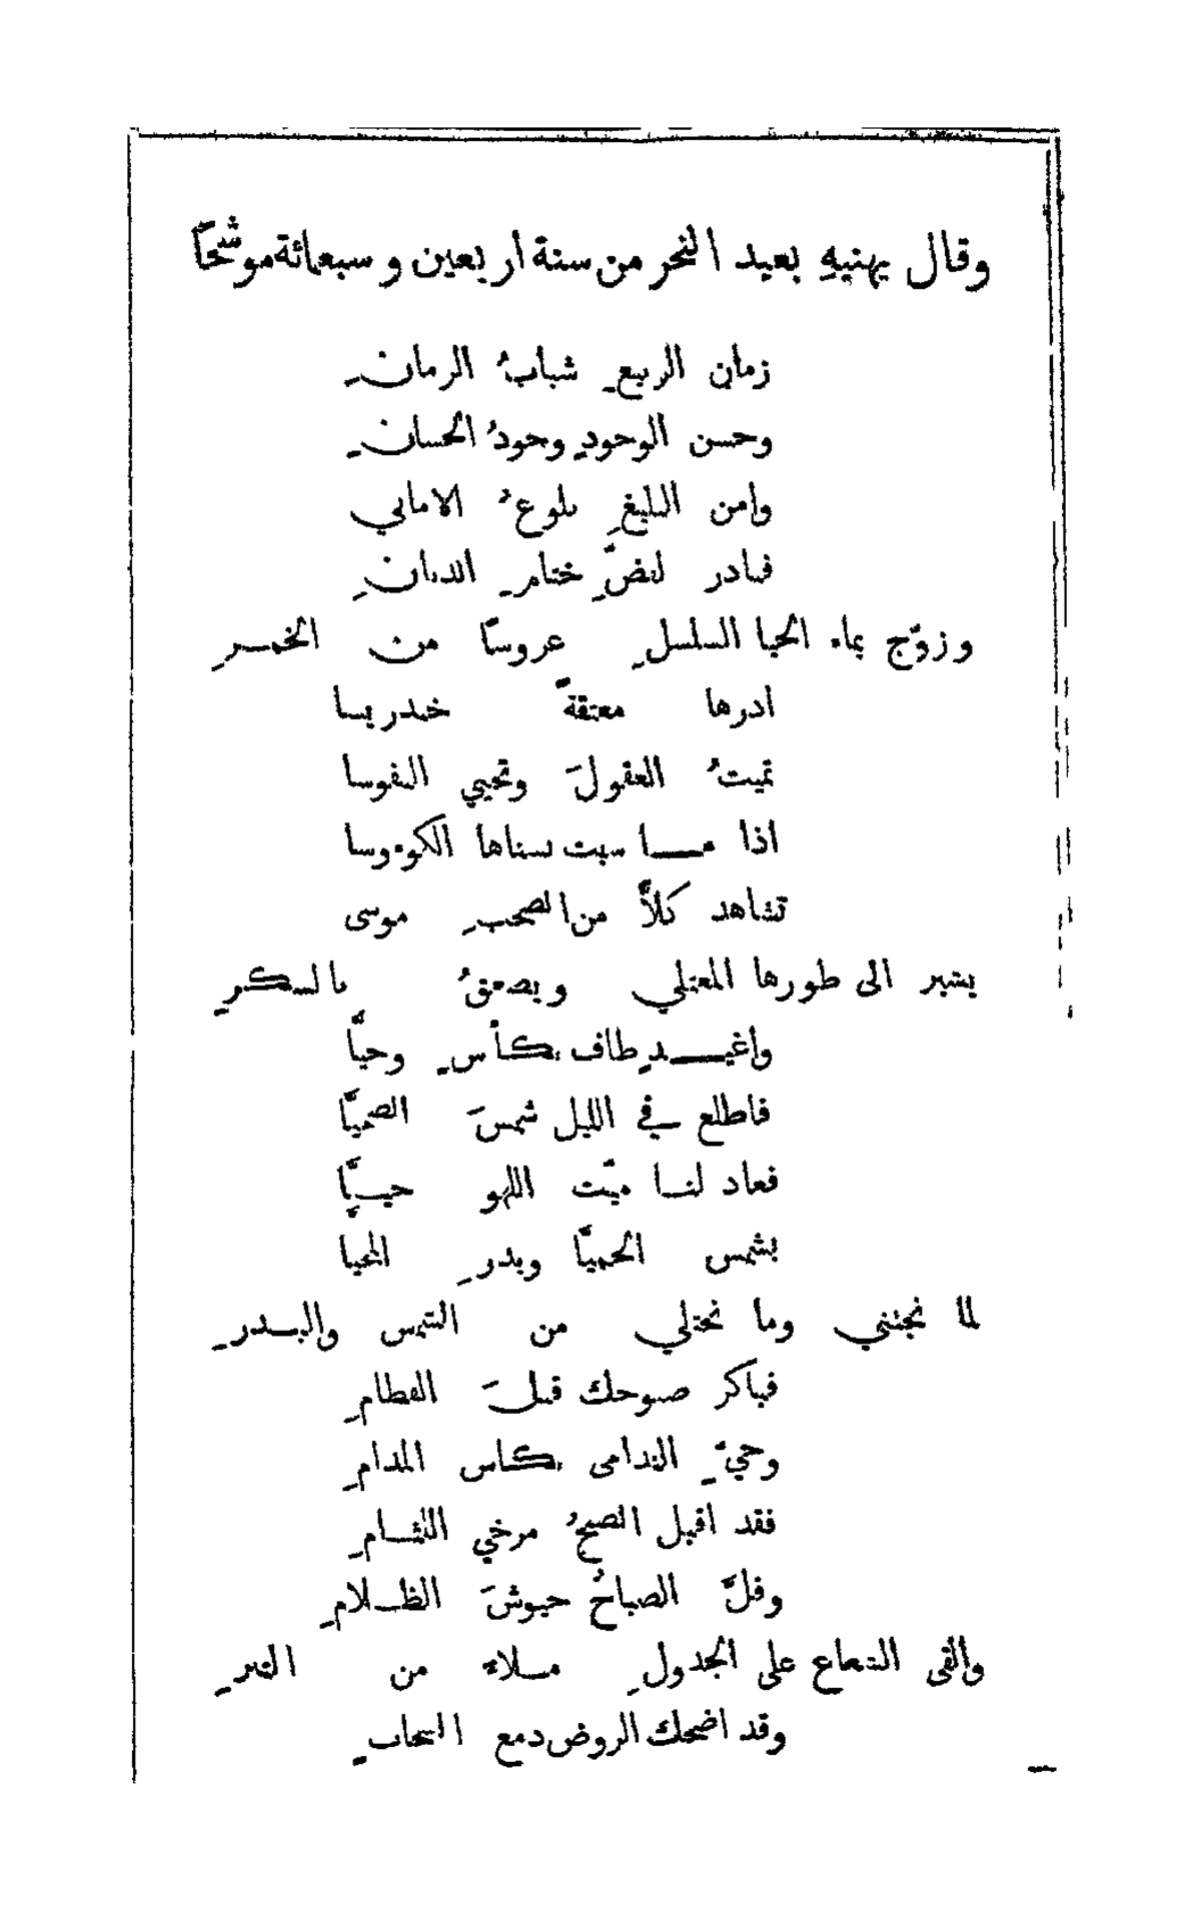 وقال يهنيهِ بعيد النحر من سنة اربعين وسبعمائة موشّحًا
زمان الربيعِ شبابُ الزمانِ
وحسن الوجودِ وجودُ الحسانِ
وامن البليغِ بلوغُ الاماني
فبادر لفضِّ ختامِ الدنانِ
وزوّج بماء الحيا السلسلِ عروسًا من الخمرِ
ادرها معتقةً خندريسا
تميتُ العقولَ وتحيي النفوسا
اذا ما سبت بسناها الكوءوسا
تشاهد كلاًّ من الصحبِ موسى
يشير الى طورها المعتلي ويصعقُ بالسكرِ
واغيدِ طاف بكأسِ وحيَّا
فاطلع في الليل شمسَ الضحيَّا
فعاد لنا ميّت اللهو حيًّا
بشمس الحميَّا وبدرِ المحيا
لما نجتني وما نجتلي من الشمس والبدرِ
فباكر صبوحك قبلَ الفطامِ
وحيِّ الندامى بكاس المدامِ
فقد اقبل الصبحُ مرخي اللثامِ
وفلَّ الصباحُ جيوشَ الظلامِ
والقى الشعاع على الجدولِ ملاءً من التبرِ
وقد اضحك الروض دمع السحابِ